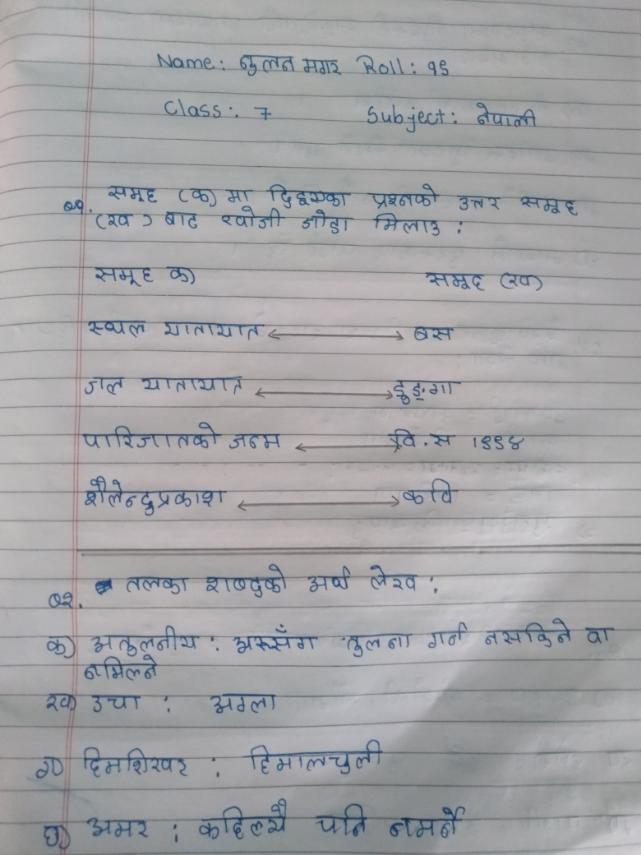 Name: नुलन मगर Roll: १५
Class: 7 Subject: नेपाली
Q१. समूह (क) मा दिइएका प्रश्नको उत्तर समूह
(ख) बाट खोजी जोडा मिलाउ :
समूह क) समूह (ख)
स्थल यातायात बस
जल यातायात डुङ्गा
पारिजातको जन्म वि.स १९९४
शैलेन्दुप्रकाश कवि
Q२. तलका शब्दको अर्थ लेख :
क) अतुलनीय : अरूसँग तुलना गर्न नसकिने वा
नमिल्ने
ख) उचा : अग्ला
ग) हिमशिखर : हिमालचुली
घ) अमर : कहिल्यै पनि नमर्ने